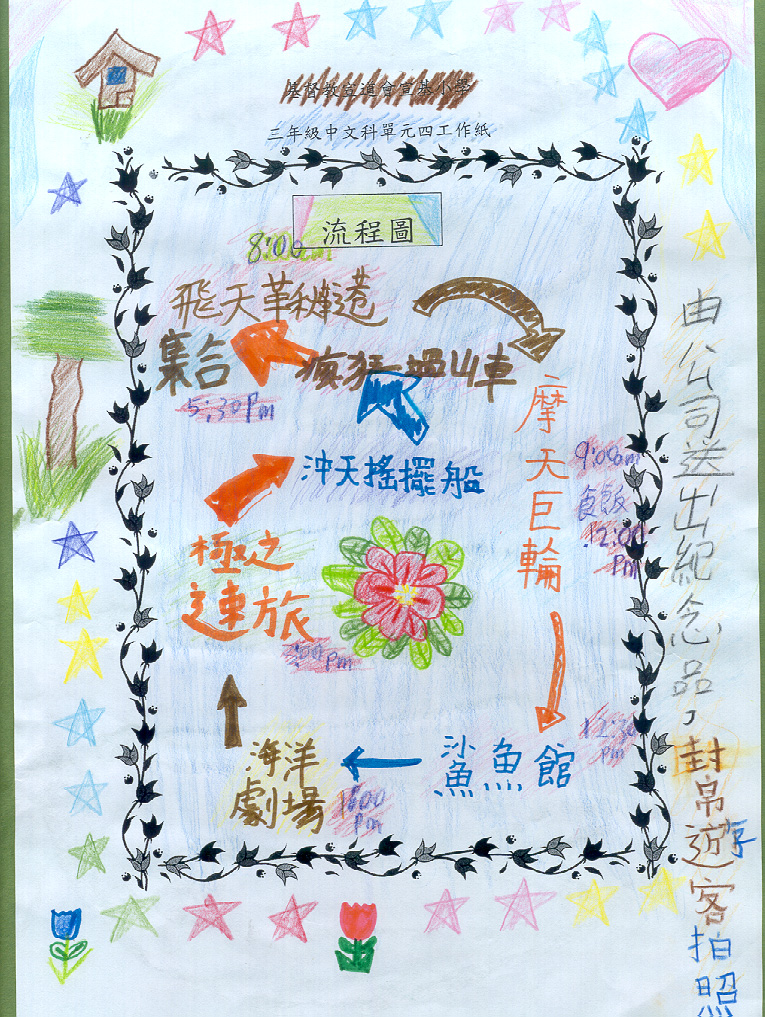 基督教宣道會宣基小學
三年級中文科單元四工作紙
流程圖
8:00
飛天革秋韆港
瘋狂過山車
集合
5:30Pm
摩天巨輪
9:00am
食飯
12:00
Pm
沖天搖擺船
極之
速旅
pm
12:30
pm
鯊魚館
海洋
劇場
1:00
pm
由公司送出紀念品，封帛遊客拍照
孚